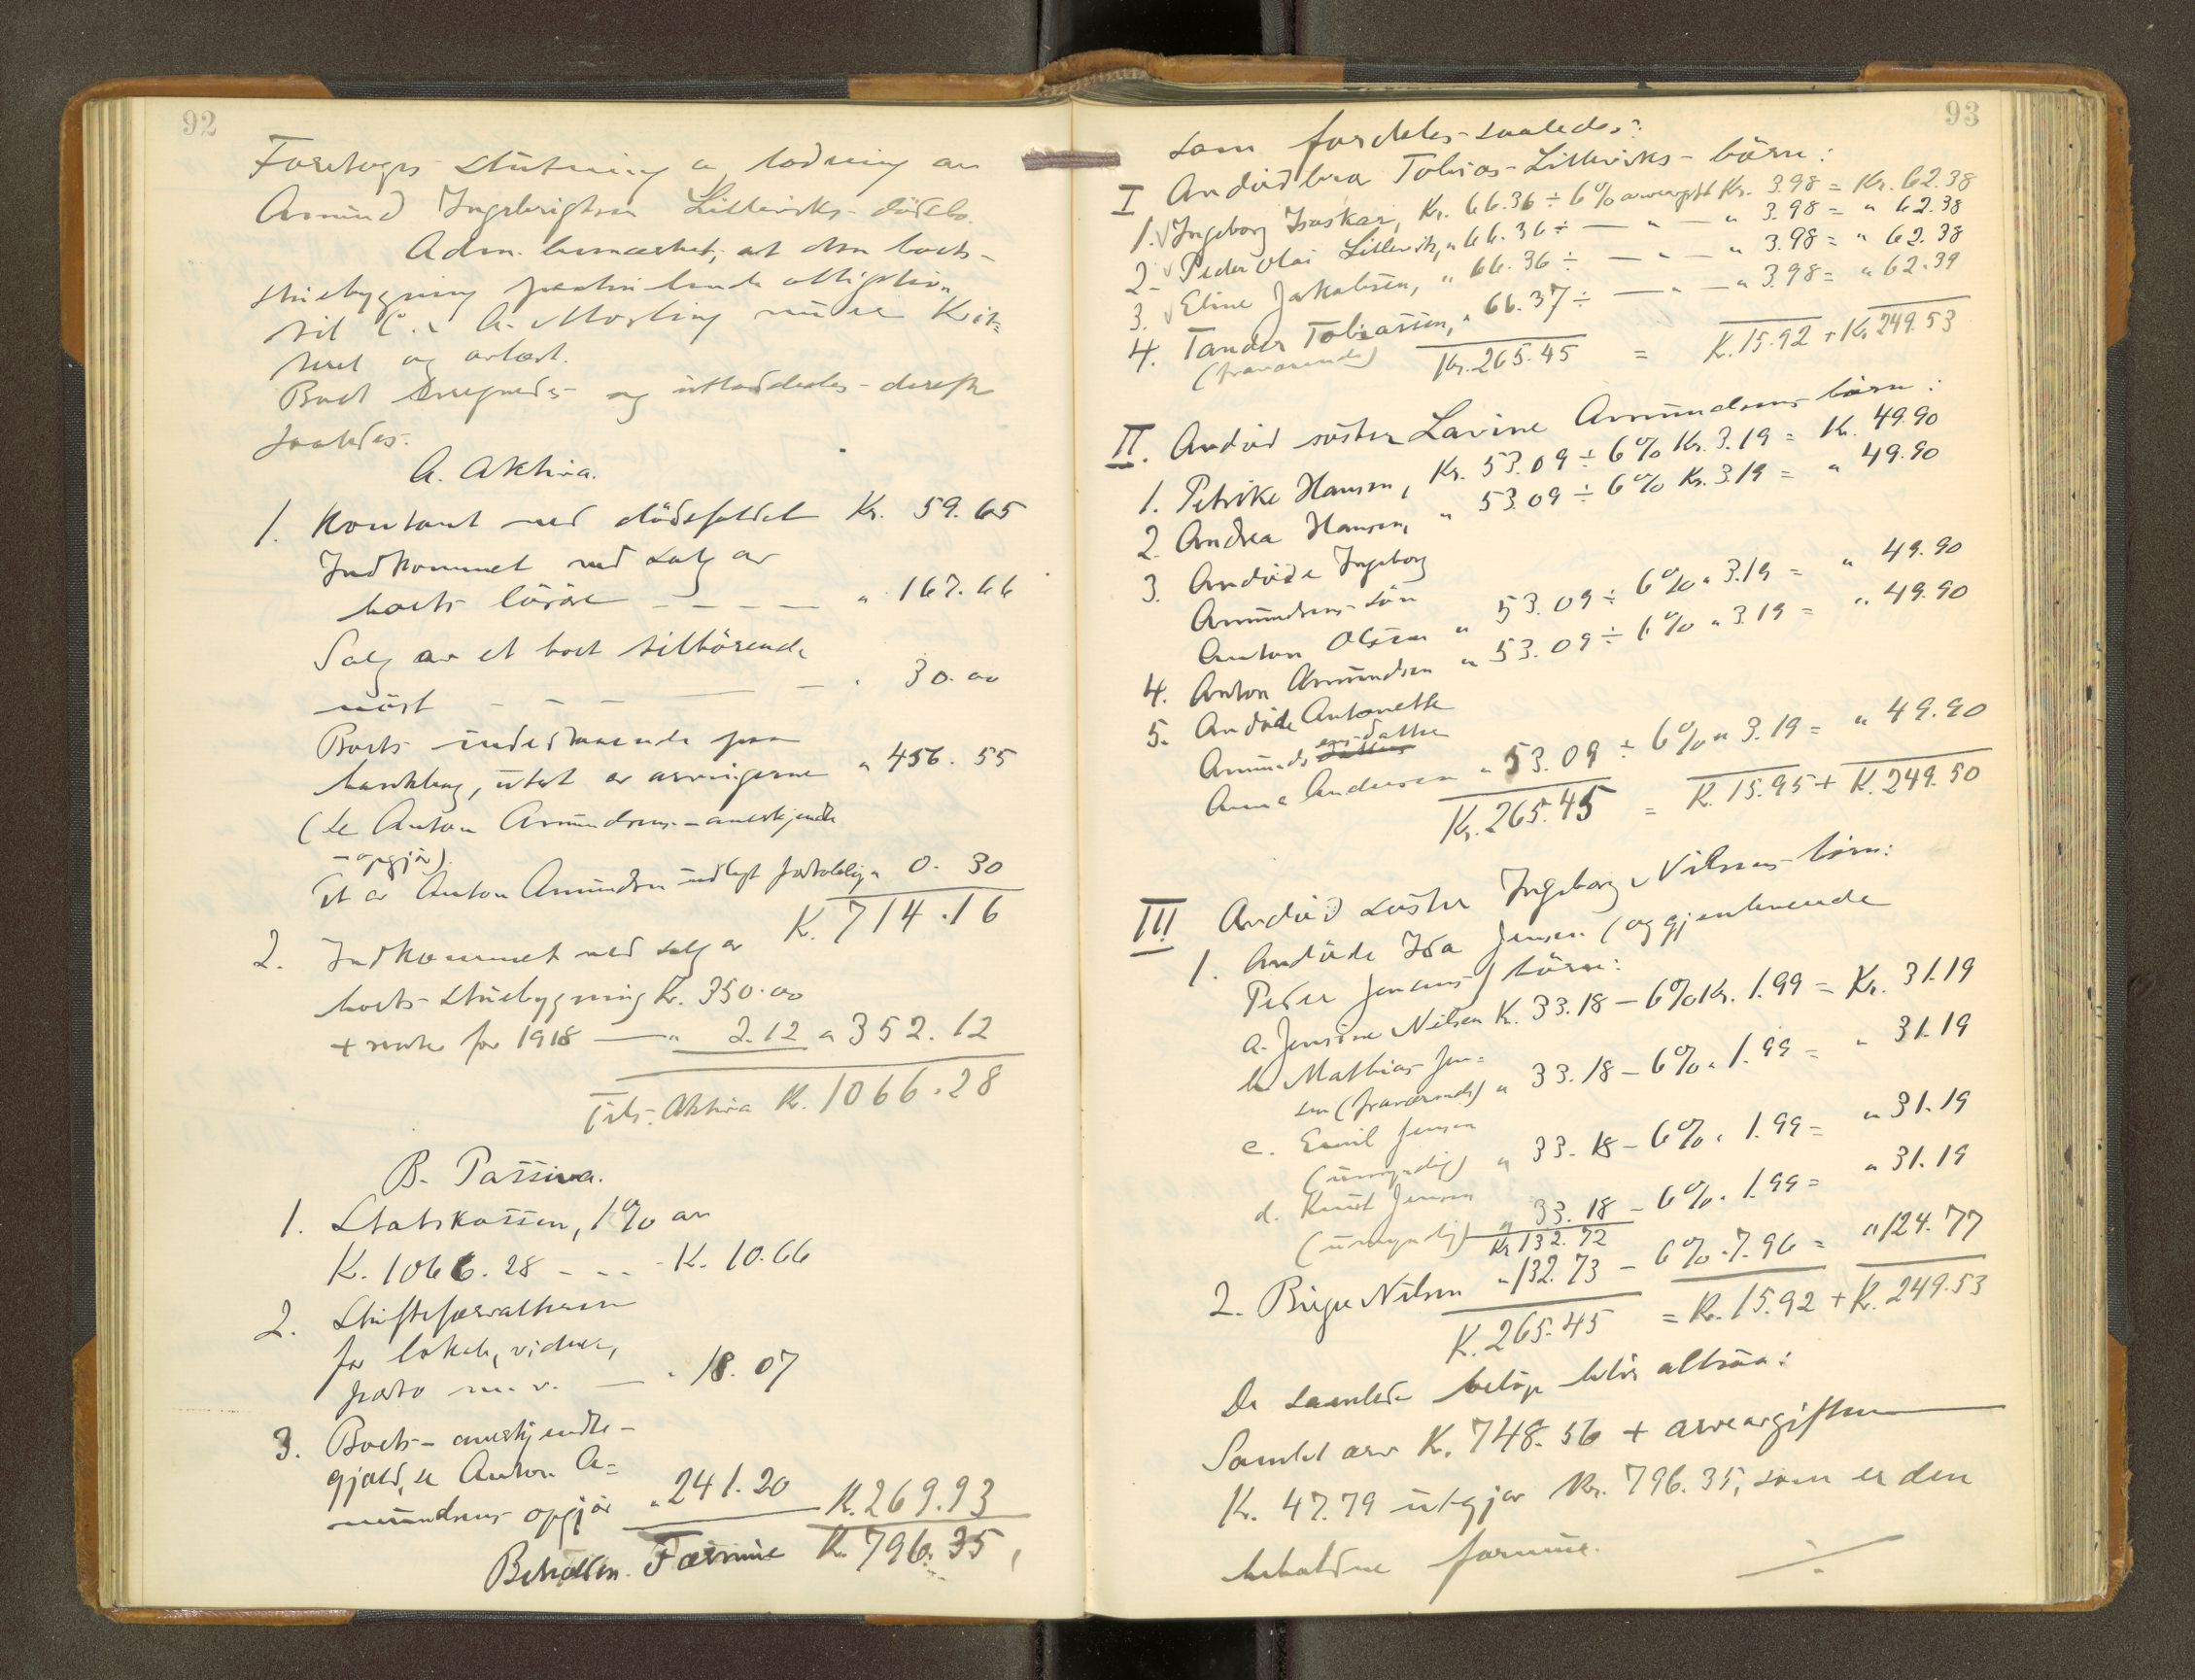 92
Foretoges slutning a lodning av
Amund Ingebrigtsen Littleviks dødsbo.
Adm. bemærket, at den boets
stuebygning
til C. A. Morling
teret og avlæst.
Boet beregnedes og utloddedes derefter
saaledes:
A. Aktiva.
1. Kontant ved dödsfaldet Kr. 59.65
Indkommet ved salg av
boets lösöre - - - - " 167.66
Salg av et boet tilhörende
nöst - - - - " 30.00
Boets indestaaende paa
bankbog, uttat av arvingerne " 456.55
(se Anton Amundsens anerkjendte
opgjör).
Et av Anton Amundsen indlagt 0.30
K. 714.16
2. Indkommet ved salg av
boets stuebygning Kr. 350.00
+ rente for 1918 — " 2.12 " 352.12
Tils. Aktiva K. 1066.28
B. Passiva.
1. Statskassen, 1% av
K. 1066.28 - - - K. 10.66
2. Skifteforvalteren
for lokale, vidner,
porto m. v. — " 18.07
3. Boets anerkjendte
gjæld, se Anton A=
mundsens opgjör " 241.20 K. 269.93
Beholden Formue K. 796.35,
93
som fordeles saaledes:
I Avdöd bror Tobias Litleviks börn:
1. Ingeborg Isaksen, Kr. 66.36 ÷ 6% arveavgift Kr. 3.98 = Kr. 62.38
2. Peder Olai Litlevik, " 66.36 ÷ — " — " 3.98 = " 62.38
3. Eline Jakobsen, " 66.36 ÷ — " — " 3.98 = " 62.38
4. Tander Tobiassen, " 66.37 ÷ — " — " 3.98 = " 62.39
(fraværende) Kr. 265.45 = K. 15.92 + K. 249.53
II. Avdöd söster Lavine Amundsens börn:
1. Petrike Hansen, Kr. 53.09 ÷ 6% Kr. 3.19 = Kr. 49.90
2. Andrea Hansen, " 53.09 ÷ 6% Kr. 3.19 = " 49.90
3. Avdöde Ingeborg
Amundsens sön
Anton Olsen " 53.09 ÷ 6% " 3.19 = " 49.90
4. Anton Amundsen " 53.09 ÷ 6% " 3.19 = " 49.90
5. Avdöde Antonette
Amundsens datter
Anna Andersen " 53.09 ÷ 6% " 3.19 = " 49.90
Kr. 265.45 = K. 15.95 + K. 249.50
III Avdöd söster Ingeborg Nilsens börn:
1. Avdöde Ida Jensen (og gjenlevende
Peder Jensens) börn:
a. Jensine Nilsen K. 33.18 – 6% Kr. 1.99 = Kr. 31.19
b. Mathias Jen=
sen (fraværende) " 33.18 – 6% " 1.99 = " 31.19
c. Emil Jensen
(umyndig) " 33.18 – 6% " 1.99 = " 31.19
d. Knut Jensen
(umyndig) " 33.18 – 6% " 1.99 = " 31.19
Kr. 132.72
2. Birger Nilsen " 132.73 – 6% " 7.96 = " 124.77
K. 265.45 = Kr. 15.92 + K. 249.53
De samlede belöp blir altsaa:
Samlet arv K. 748.56 + arveavgiften
K. 47.79 utgjør Kr. 796.35, som er den
beholdne formue.